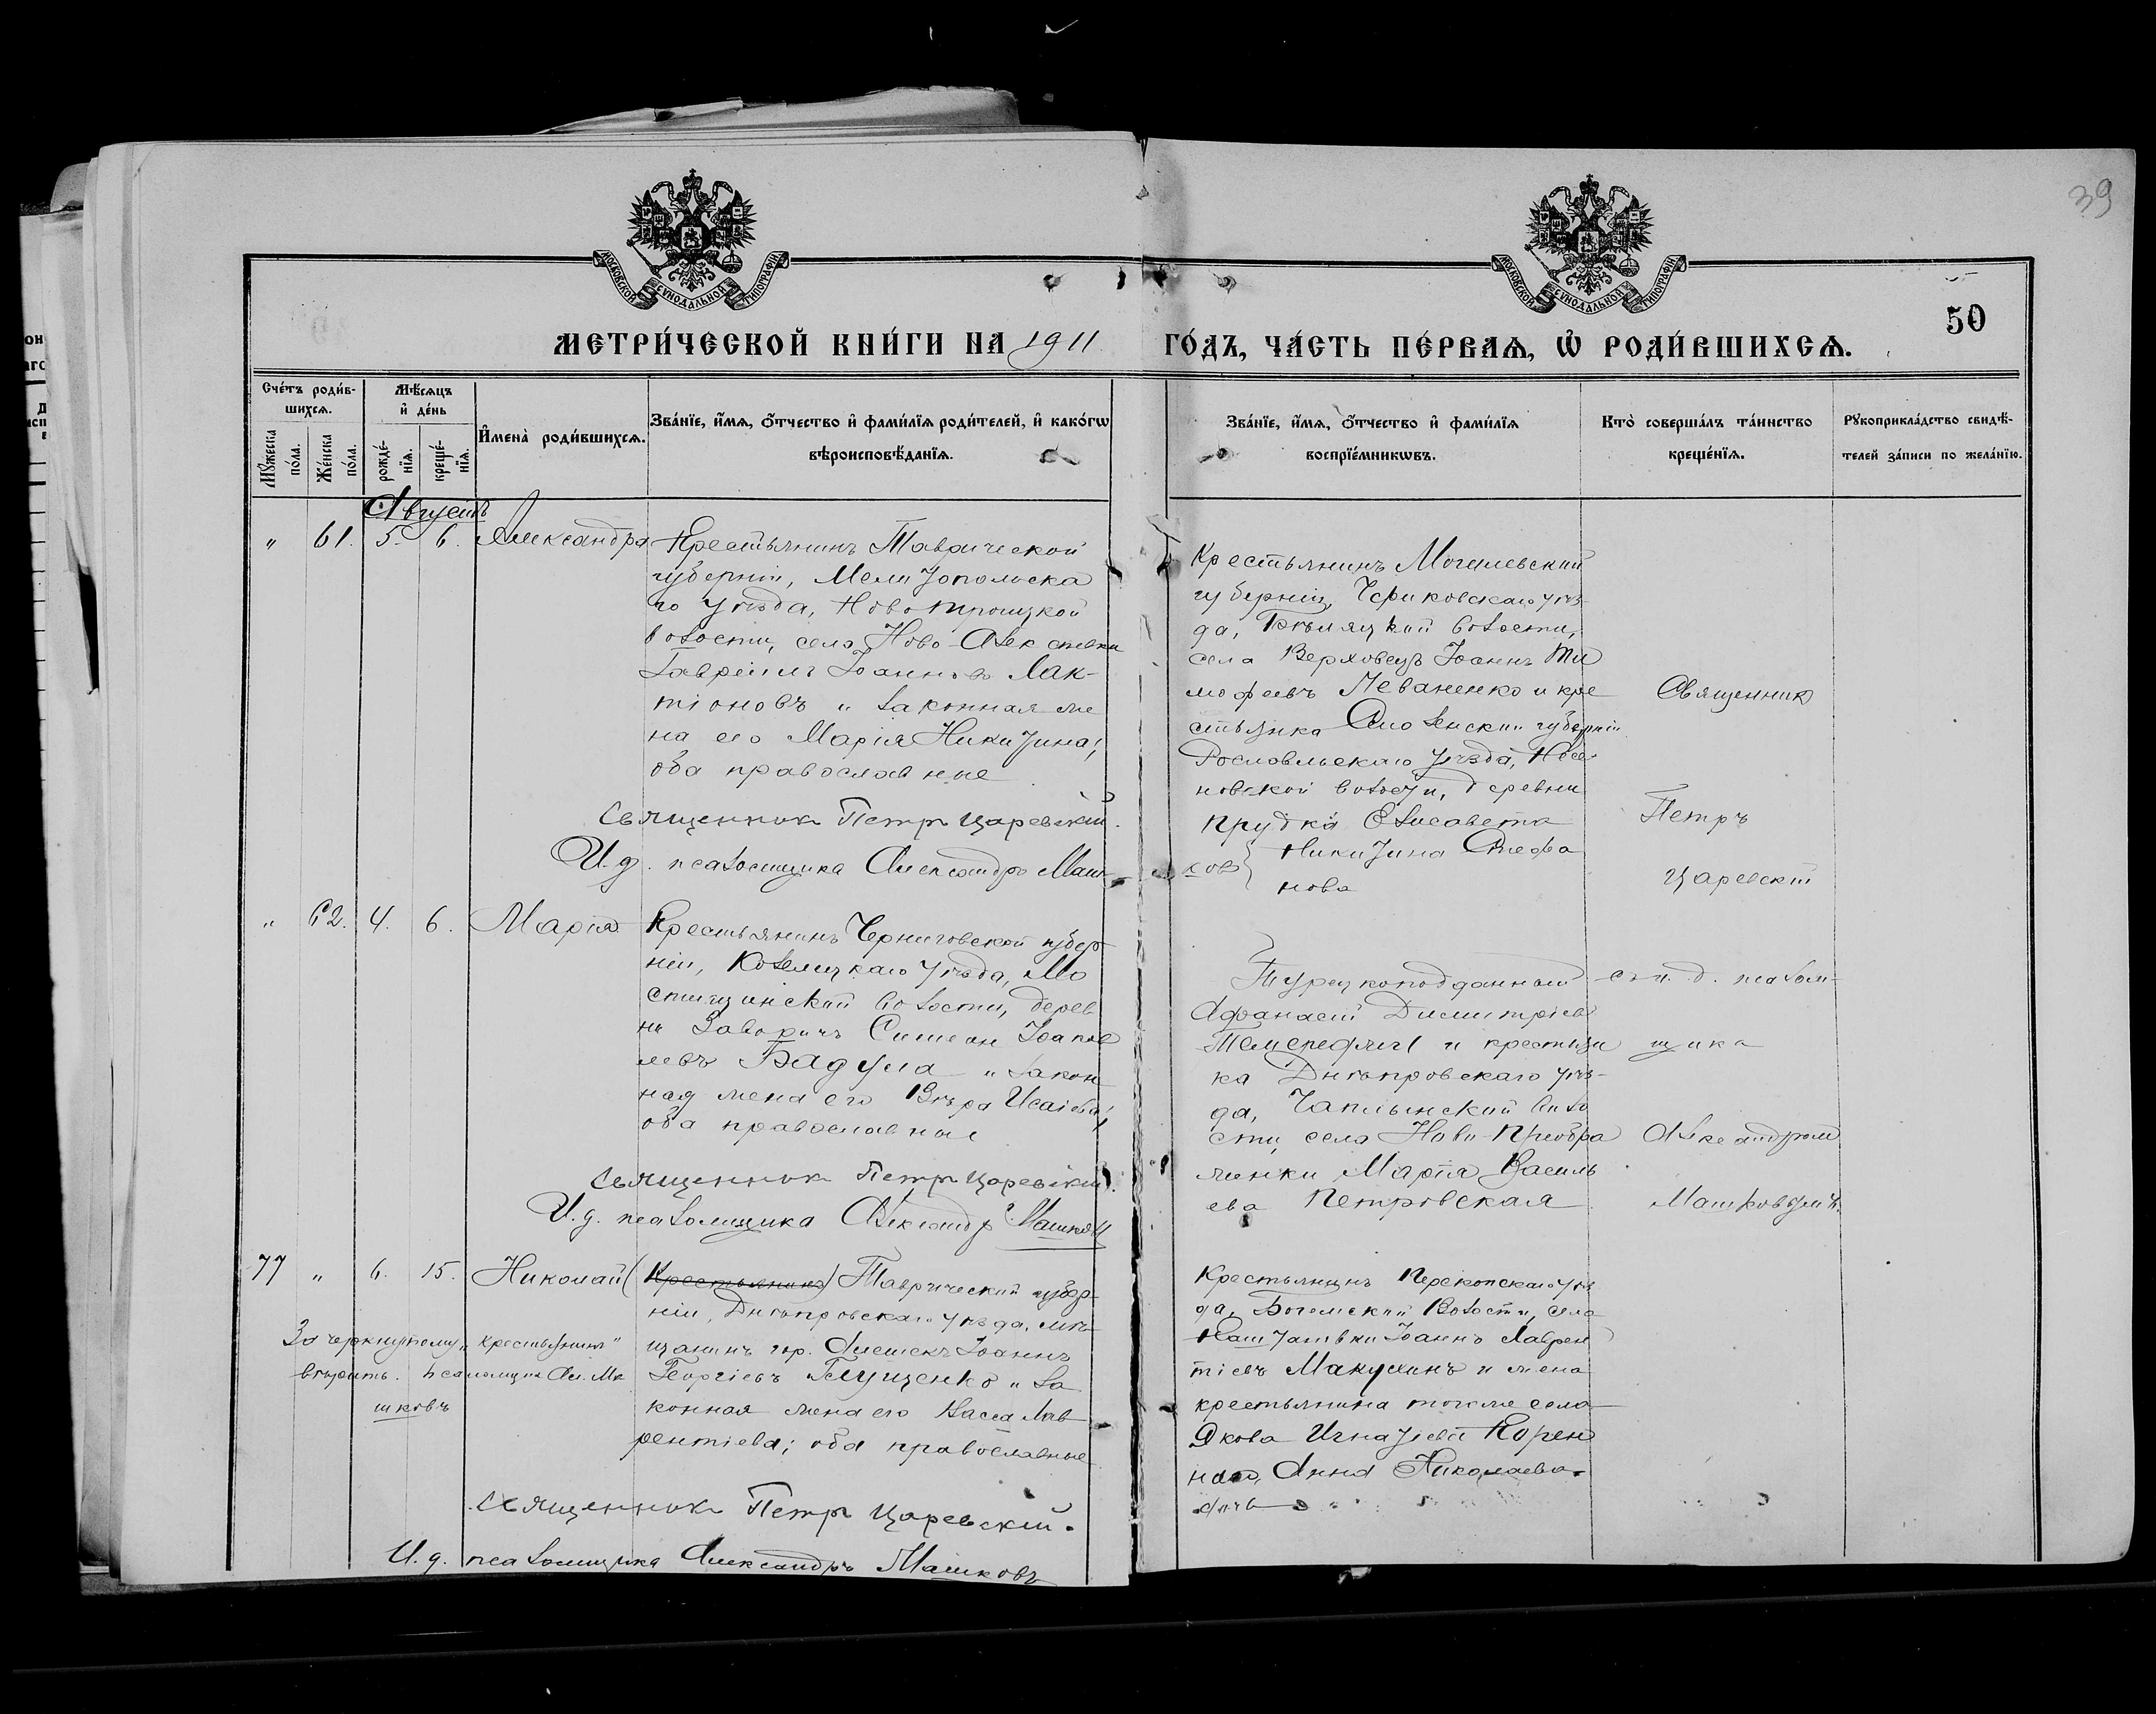 39
МОСКОВСКОЙ СѴНОДАЛЬНОЙ ТИПОГРАФІИ
МОСКОВСКОЙ СѴНОДАЛЬНОЙ ТИПОГРАФІИ
50
МЕТРИ́ЧЕСКОЙ КНИ́ГИ НА 1911 ГО́ДЪ, ЧА́СТЬ ПЕ́РВАѦ, Ѡ҆ РОДИ́ВШИХСѦ.
Сче́тъ роди́в-
шихсѧ.
Мꙋ́жеска по́ла.
Же́нска по́ла.
Мѣ́сѧцъ
и҆ де́нь
рожде́-
нїѧ.
креще́-
нїѧ.
И҆мена̀ роди́вшихсѧ.
Зва́нїе, и҆́мѧ, ѻ҆́тчество и҆ фами́лїѧ роди́телей, и҆ како́гѡ
вѣроисповѣ́данїѧ.
Зва́нїе, и҆́мѧ, ѻ҆́тчество и҆ фами́лїѧ
воспрїе́мникѡвъ.
Кто̀ соверша́лъ та́инство
креще́нїѧ.
Рꙋкоприкла́дство свидѣ́-
телей за́писи по жела́нїю.
Августъ
" 61. 5. 6. Александра
Крестьянинъ Таврической
губерніи, Мелитопольска
го уѣзда, Новотроицкой
волости, села Ново-Алексѣевки
Гавріилъ Іоанновъ Лак-
тіоновъ и законная же
на его Марія Никитина;
оба православные
Священникъ Петръ Царевскій.
И.д. псаломщика Александръ Маш-
ковъ
Крестьянинъ Могилевской
губерніи, Чериковскаго уѣз-
да, волости,
села Верховецъ Іоаннъ Ти
мофеевъ Леваненко и кре
стьянка Смоленской губерніи
Рославльскаго уѣзда,
новской волости, деревни
Прудка Елисавета
Никитина Стефа
нова
Священникъ
Петръ
Царевскій
" 62. 4. 6. Марія
Крестьянинъ Черниговской губер
ніи, Козелецкаго уѣзда, Мо
стищинской волости, дерев
ни Заворичъ Симеонъ
левъ Бадула и закон
ная жена его Вѣра Исаіева;
оба православные
Священникъ Петръ Царевскій.
И.д. псаломщика Александръ Машковъ
Турецкоподданный
Афанасій Димитріевъ
и крестьян
ка Днѣпровскаго уѣз-
да, Чаплынской воло
сти, села Ново-Преобра
женки Марія Василь
ева Петровская
съ и.д. псалом-
щика
Александромъ
Машковымъ.
77 " 6. 15. Николай
(Крестьянинъ) Таврической губер-
ніи, Днѣпровскаго уѣзда, мѣ-
щанинъ гор. Алешекъ Іоаннъ
Георгіевъ Глущенко и за
конная жена его Васса Лав
рентіева; оба православные
Зачеркнутому "крестьянинъ"
вѣрить. Псаломщикъ Ал. Ма
шковъ
Священникъ Петръ Царевскій.
И.д. псаломщика Александръ Машковъ
Крестьянинъ Перекопскаго уѣз
да, Богемской волости, села
Іоаннъ Лаврен
тіевъ Макухинъ и жена
крестьянина тогоже села
Якова Игнатіева Корен
Анна Николаева